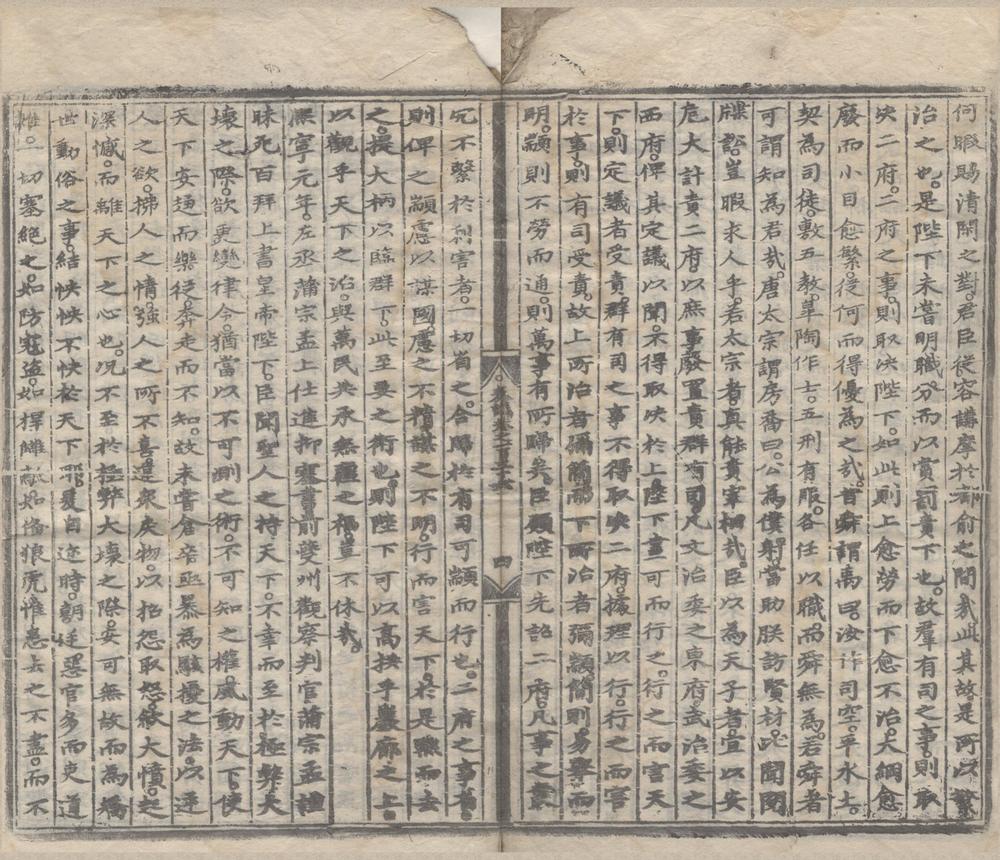 何暇賜清閒之對。君臣從容講摩於都俞之間哉。此其故是所以繁
治之也。是陛下未嘗明職分。而以賞罰責下也。故羣有司之事。則取
决二府。二府之事。則取决陛下。如此則上愈勞而下愈不治。大綱愈
廢而小目愈繁。從何而得優為之哉。昔舜謂禹曰。汝作司空。平水土。
契為司徒。敷五教。臯陶作士。五刑有服。各任以職而舜無為。若舜者
可謂知為君哉。唐太宗謂房喬曰。公為僕射。當助朕訪賢材。此聞閱
牒訟。豈暇求人乎。若太宗者。真能責宰相哉。臣以為天子者。宜以安
危大計責二府。以庶事廢置責群有司。凡文治委之東府。武治委之
西府。俾其定議以聞。不得取决於上。陛下畫可而行之。行之而害天
下。則定議者受責。群有司之事不得取决二府。據理以行。行之而害
於事。則有司受責。故上所治者彌簡。而下所治者彌顓。簡則易舉而
明。顓則不勞而通。則萬事有所歸矣。臣願陛下先詔二府。凡事之叢
冗不繫於利害者。一切省之。合歸於有司可顓而行也。二府之事省。
則俾之顓慮以謀國。慮之不精。謀之不明。行而害天下。於是黜而去
之。提大柄以臨群下。此至要之術也。則陛下可以高拱乎巖廊之上。
以觀乎天下之治。與萬民共承無疆之福。豈不休哉。
熈寧元年。左丞蒲宗孟上仕進抑塞書。前夔州觀察判官蒲宗孟謹
昧死百拜上書皇帝陛下。臣聞聖人之持天下。不幸而至於極弊大
壞之際。欲更變律令。猶當以不可測之術。不可知之權。風動天下。使
天下安趨而樂從。奔走而不知。故未嘗倉卒亟暴為駭擾之法。以逆
人之欲。拂人之情。強人之所不喜。違衆戾物。以招怨取怒。歛大憤。起
深憾。而離天下之心也。况不至於極弊大壞之際。安可無故而為矯
世動俗之事。結怏怏不快於天下耶。夏自迩時。朝廷惡官多而吏道
雜。一切塞絶之。如防寇盗。如捍讎敵。如備狼虎。惟患去之不盡。而不
四